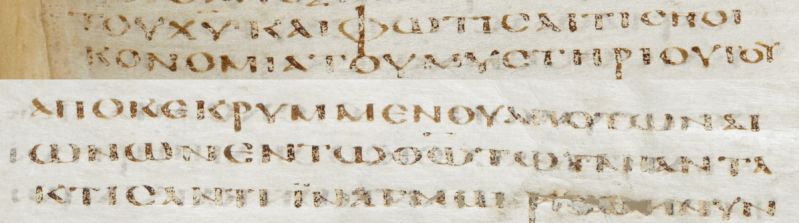 ΤΟΥΧΥΚΑΙΦΩΤΙCΑΙΤΙCΗΟΙ
ΚΟΝΟΜΙΑΤΟΥΜΥCΤΗΡΙΟΥΤΟΥ
ΑΠΟΚΕΚΡΥΜΜΕΝΟΥΑΠΟΤΩΝΑΙ
ΩΝΩΝΕΝΤΩΘΩΤΩΤΑΠΑΝΤΑ
ΚΤΙCΑΝΤΙΪΝΑΓΝΩΡΙCΘΗΝΥΝ